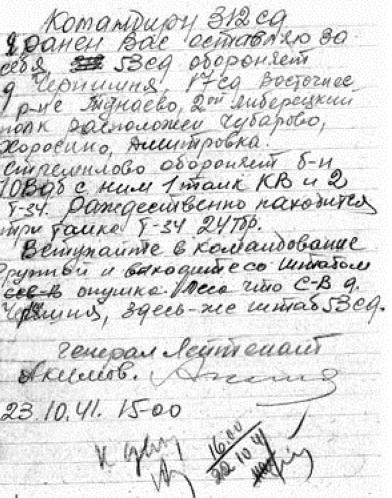 Командиру 312 сд
Я ранен Вас оставляю за
себя 53сд обороняет
д Чернишня, 17сд Восточнее
р-не Тунаево, 2ой люберецкий
полк расположен Чубарово,
Хоросино, Дмитровка.
Стремилово обороняет б-н
10Вдб с ним 1 танк КВ и 2
Т-34. Рождественно находится
три танка Т-34 24тбр.
Вступайте в командование
группой и выходите со штабом
опушка леса что С-В д.
Чернишня, здесь-же штаб 53сд.
генерал лейтенант
Акимов.
23.10.41. 15-00
16.00
22 10 41